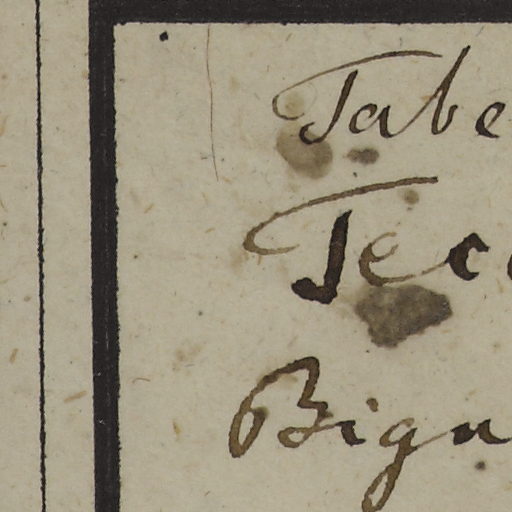 Tabe
Tec
Bign